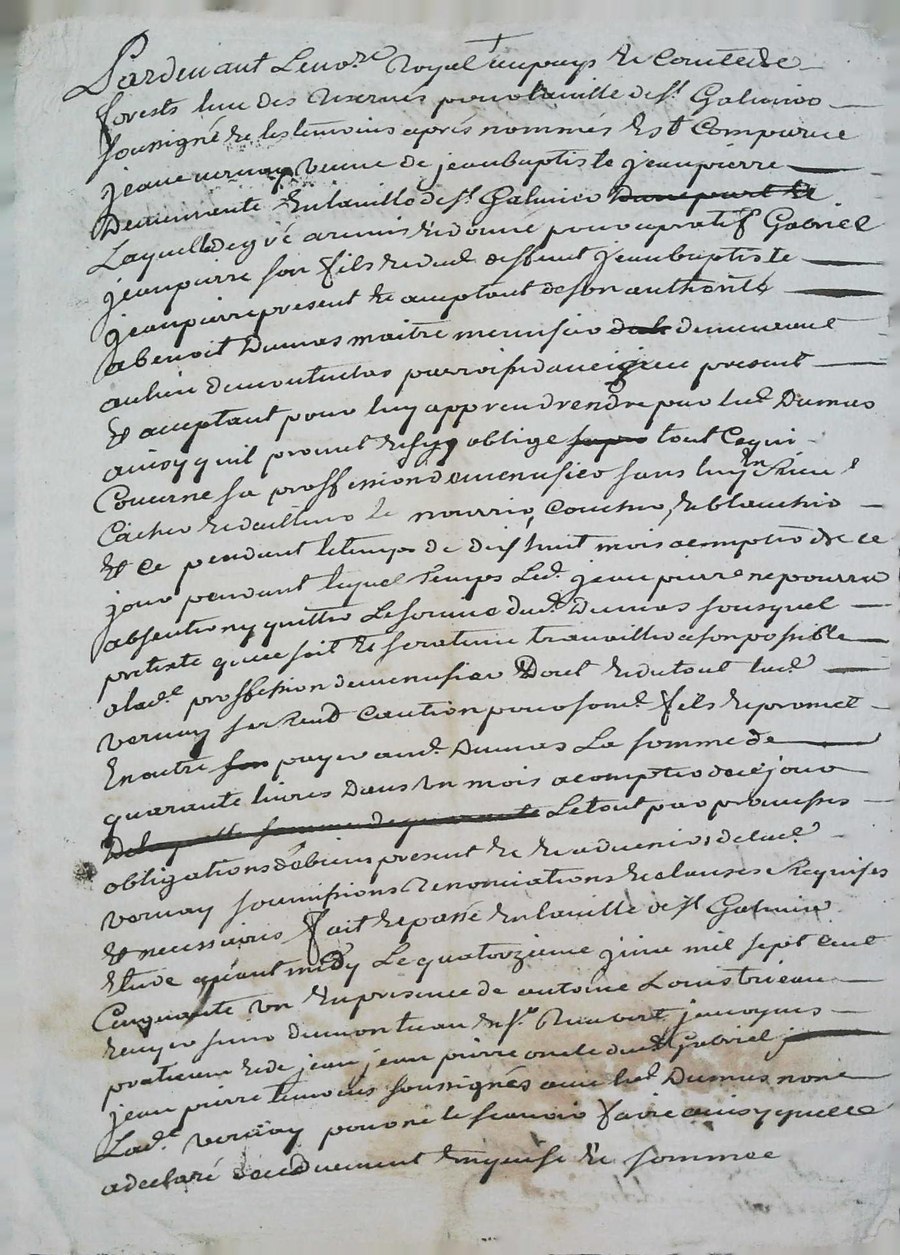 Pardevant Le no.re Royal au pays & Comté de
forests l'un des reservés pour la ville de S.t Galmier
soussigné & les temoins aprés nommés est Comparue
jeane vernay veuve de jean baptiste jeanpierre
Demeurante en la ville de S.t Galmier Dune part &
Laquelle de gré a remis & donné pour aprantif Gabriel
jeanpierre son fils & dud. deffunt jean baptiste
jeanpierre present & acceptant de son authorité
a benoit Dumas maitre menusier de la demeurant
au lieu de parroisse present
Et acceptant pour luy apprendre par led. Dumas
ainsy quil promet & sy oblige tout Ce qui
Concerne sa proffession de menusier sans luy en Rien
Cacher & d'ailleurs le nourrir, Coucher, & blanchir
Et Ce pendant le temps de dix huit mois a compter de ce
jour pendant lequel temps Led. jeanpierre ne pourra
absenter ny quitter Le service dud. Dumas sous quel
pretexte que ce soit & sera tenu travailler a son possible
a lad.e proffession de menusier Dont & du tout lad.e
vernay se rend Caution pour son d. fils & promet
En outre payer aud. Dumas La somme de
quarante livres Dans un mois a compter de ce jour
De laquelle somme de quarante Le tout par promesses
obligations de biens present & a venir de lad.e
vernay soumissions renonciations & clauses Requises
Et necessaires fait & passé en la ville de S.t Galmier
Etude avant midy Le quatorzieme juin mil sept Cent
Cinquante un En presence de antoine Louis
praticien & de jean jeanpierre oncle dud. Gabriel
jean pierre temoins soussignés avec led. Dumas non
Lad.e vernay pour ne le scavoir faire ainsy quelle
a declaré de ce duement enquise & sommee